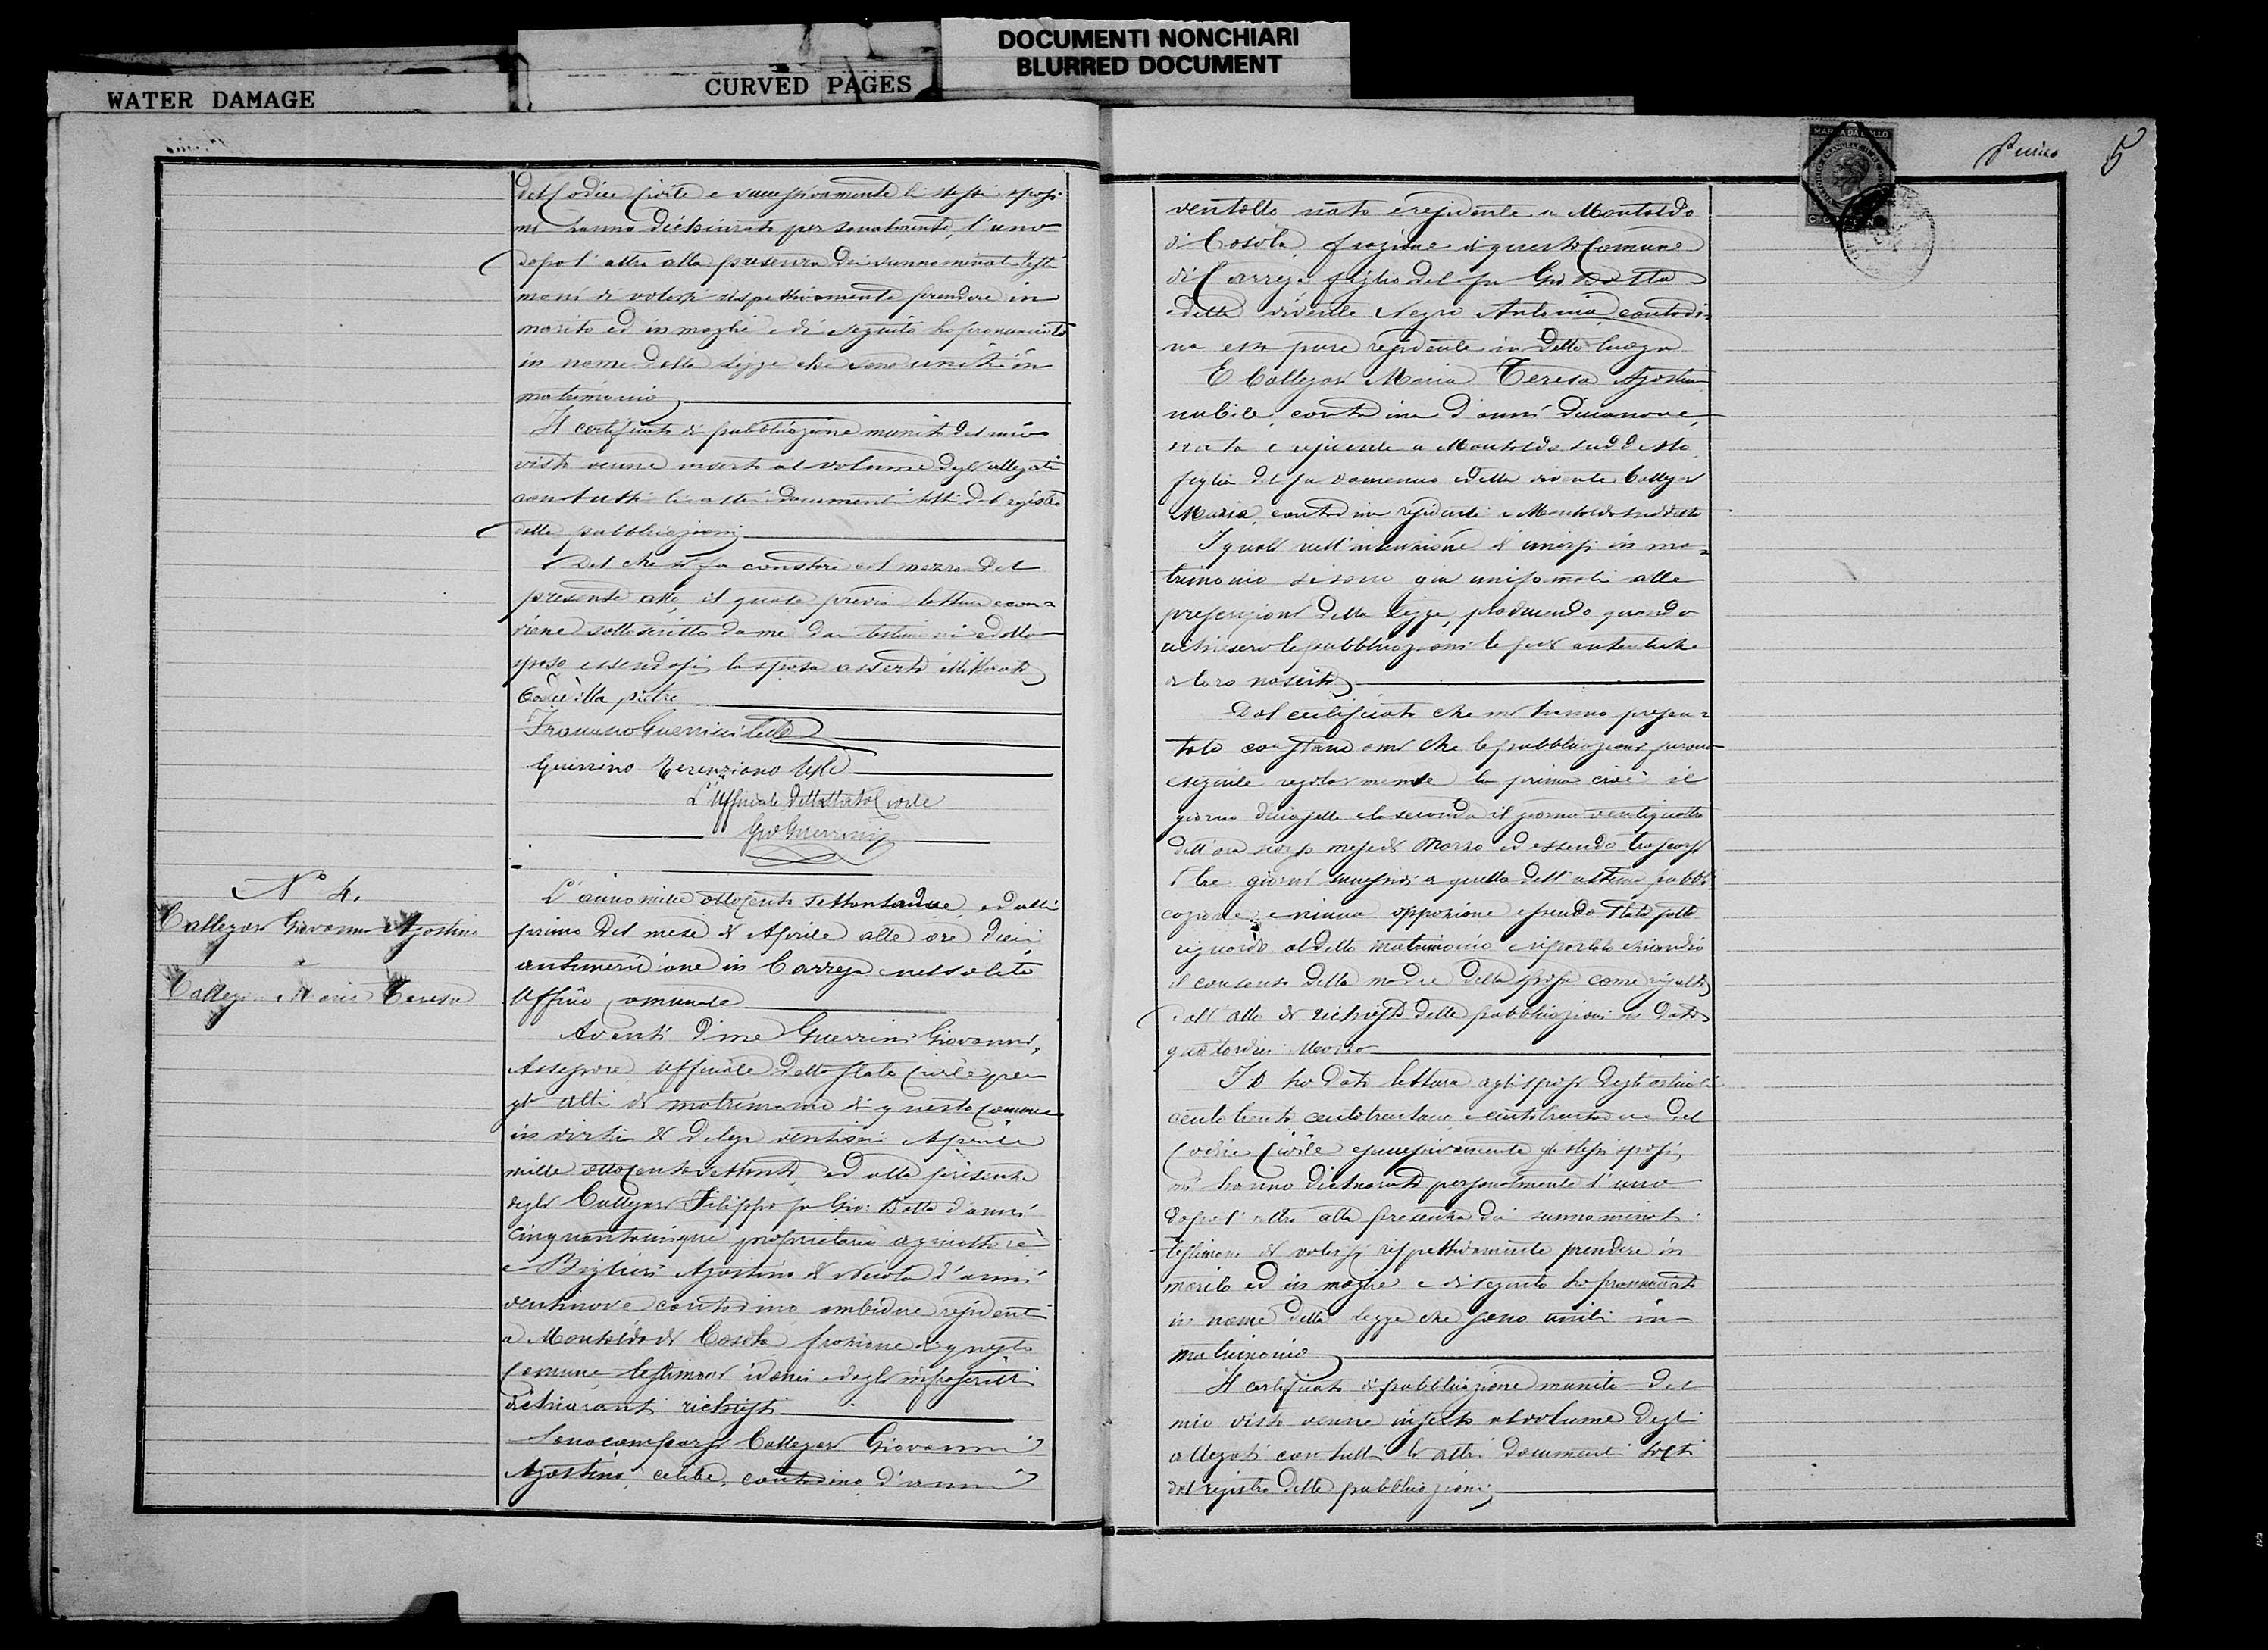 DOCUMENTI NONCHIARI
BLURRED DOCUMENT
CURVED PAGES
WATER DAMAGE
del Codice Civile e successivamente li stessi sposi
mi hanno dichiarato personalmente, l'uno
dopo l'altro alla presenza dei sunnominati testi
moni di volersi rispettivamente prendere in
marito ed in moglie e di seguito ho pronunciato
in nome della Legge che sono uniti in
matrimonio
Il certificato di pubblicazione munito del mio
visto venne inserto al volume degli allegati
con tutti li altri documenti del registro
delle pubblicazioni
Del che si fa constare col mezzo del
presente atto, il quale previa lettura
viene sottoscritto da me dai testimoni e dallo
sposo essendosi la sposa asserta illitterata
pietro
Francesco Guerrini teste
Guerrino Terenziano teste
L'Uffiziale dello Stato Civile
Gio Guerrini
N° 4.
Callegari Giovanni Agostino
e
Callegari Maria Teresa
L'anno mille ottocento settantadue, ed alli
primo del mese di Aprile alle ore dieci
antimeridiane in Carrega nel solito
Uffizio Comunale
Avanti di me Guerrini Giovanni,
Assessore Uffiziale dello Stato Civile per
gli atti di matrimonio di questo Comune
in virtù di delega ventisei Aprile
mille ottocento settanta, ed alla presenza
degli Callegari Filippo fu Gio: Batta d'anni
cinquantacinque proprietario agricoltore
e Agostino di Nicola d'anni
ventinove contadino ambidue residenti
a Montaldo di Cosola frazione di questo
Comune testimoni idonei e dagli infrascritti
dichiaranti richiesti
Sono comparsi Callegari Giovanni
Agostino, celibe, contadino d'anni
5
MARCA DA BOLLO
ventotto nato e residente a Montaldo
di Cosola, frazione di questo Comune
di Carrega figlio del fu Gio Batta
e della vivente Negro Antonia, contadi=
na essa pure residente in detto luogo
E Callegari Maria Teresa Agostina
nubile, contadina d'anni diecinove,
nata e residente a Montaldo suddetto
figlia del fu Domenico e della vivente Callegari
Maria, contadina residente a Montaldo suddetto
I quali nell'intenzione di unirsi in ma=
trimonio si sono già uniformati alle
prescrizioni della Legge, producendo quando
richiesero le pubblicazioni le fedi autentiche
di loro nascita
Dal certificato che mi hanno presen=
tato constano che le pubblicazioni furono
eseguite regolarmente la prima cioè il
giorno diciasette e la seconda il giorno ventiquattro
dell'ora scorso mese di Marzo ed essendo trascorsi
i tre giorni successivi a quello dell'ultima pubbli
cazione, e niuna opposizione essendo stata fatta
riguardo al detto matrimonio e riportato eziandio
il consenso della madre della sposa come risulta
dall'atto di richiesta delle pubblicazioni in data
quattordici Marzo
Io ho dato lettura agli sposi degli articoli
cento trenta centotrentuno e centotrentadue del
Codice Civile e successivamente gli stessi sposi,
mi hanno dichiarato personalmente l'uno
dopo l'altro alla presenza dei sunnominati
testimoni di volersi rispettivamente prendere in
marito ed in moglie e di seguito ho pronunciato
in nome della legge che sono uniti in
matrimonio
Il certificato di pubblicazione munito del
mio visto venne inserto al volume degli
allegati con tutti li altri documenti
dal registro delle pubblicazioni